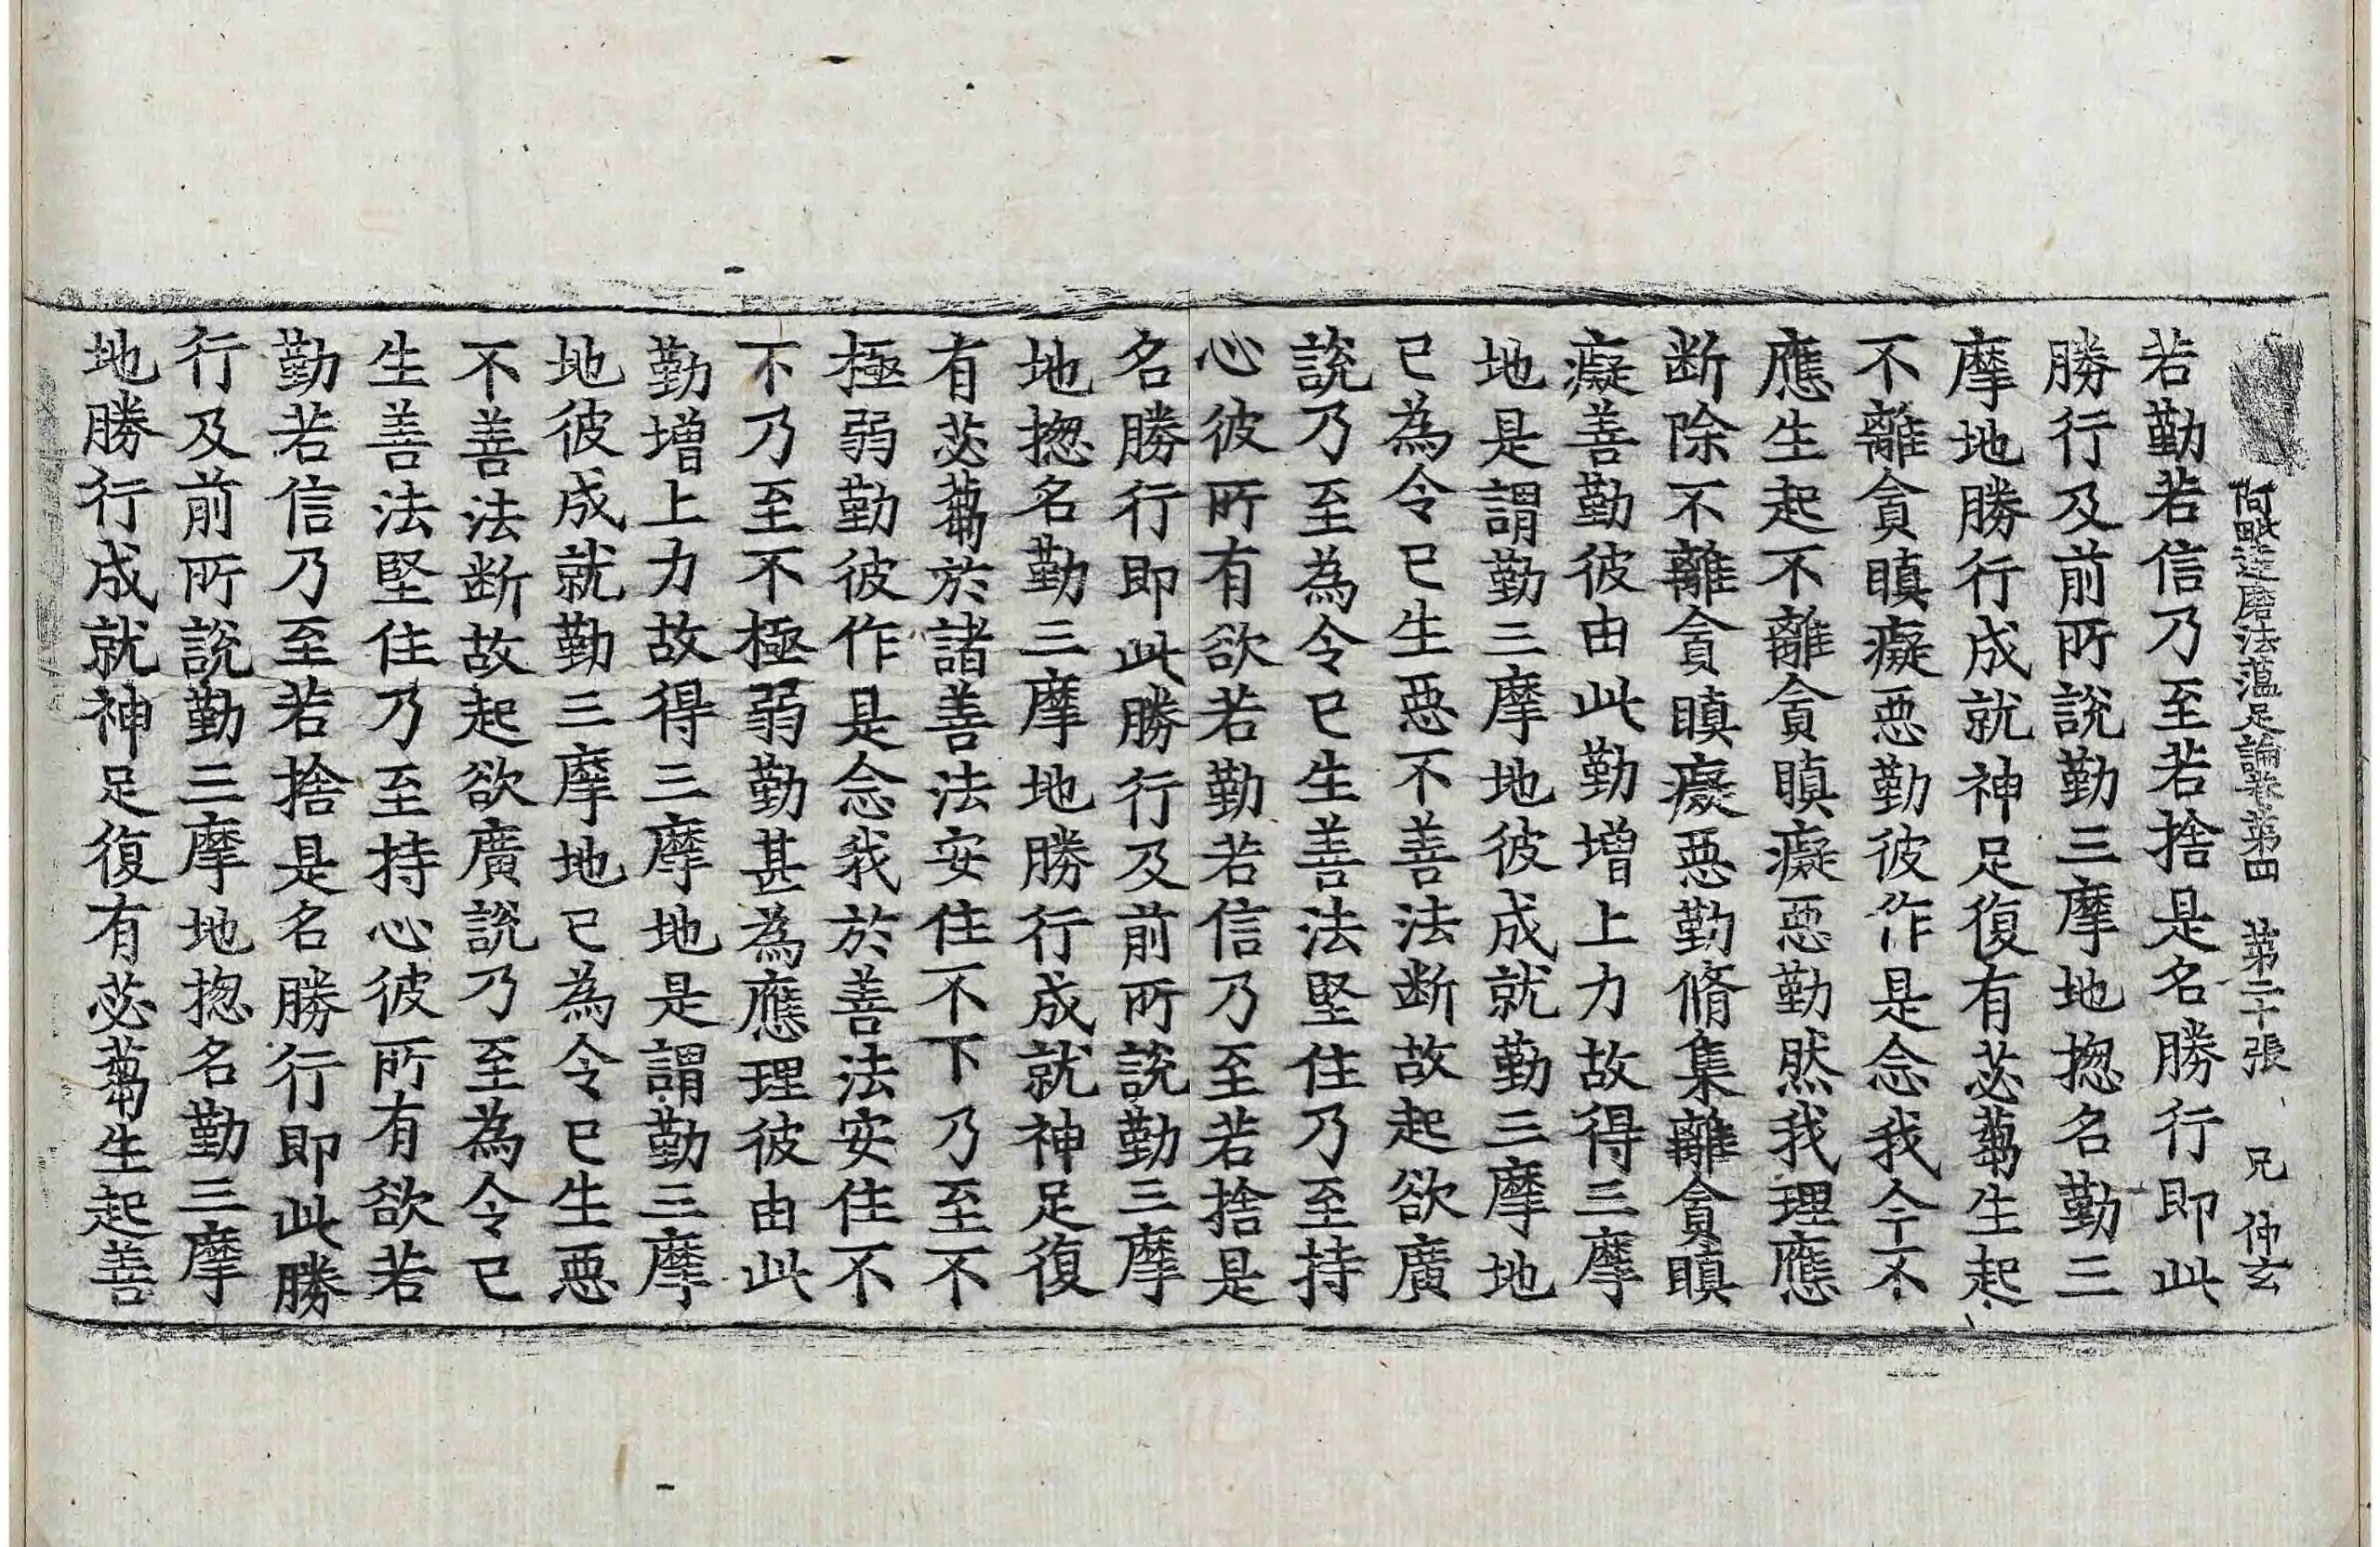 阿毗達磨法蘊足論卷第四　第二十張　兄　仲玄
若勤若信乃至若捨是名勝行即此
勝行及前所說勤三摩地揔名勤三
摩地勝行成就神足復有苾蒭生起
不離貪瞋癡惡勤彼作是念我今不
應生起不離貪瞋癡惡勤然我理應
断除不離貪瞋癡惡勤脩集離貪瞋
癡善勤彼由此勤增上力故得三摩
地是謂勤三摩地彼成就勤三摩地
已為令已生惡不善法断故起欲廣
說乃至為令已生善法堅住乃至持
心彼所有欲若勤若信乃至若捨是
名勝行即此勝行及前所說勤三摩
地揔名勤三摩地勝行成就神足復
有苾蒭於諸善法安住不下乃至不
極弱勤彼作是念我於善法安住不
不乃至不極弱勤甚為應理彼由此
勤增上力故得三摩地是謂勤三摩
地彼成就勤三摩地已為令已生惡
不善法断故起欲廣說乃至為令已
生善法堅住乃至持心彼所有欲若
勤若信乃至若捨是名勝行即此勝
行及前所說勤三摩地揔名勤三摩
地勝行成就神足復有苾蒭生起善